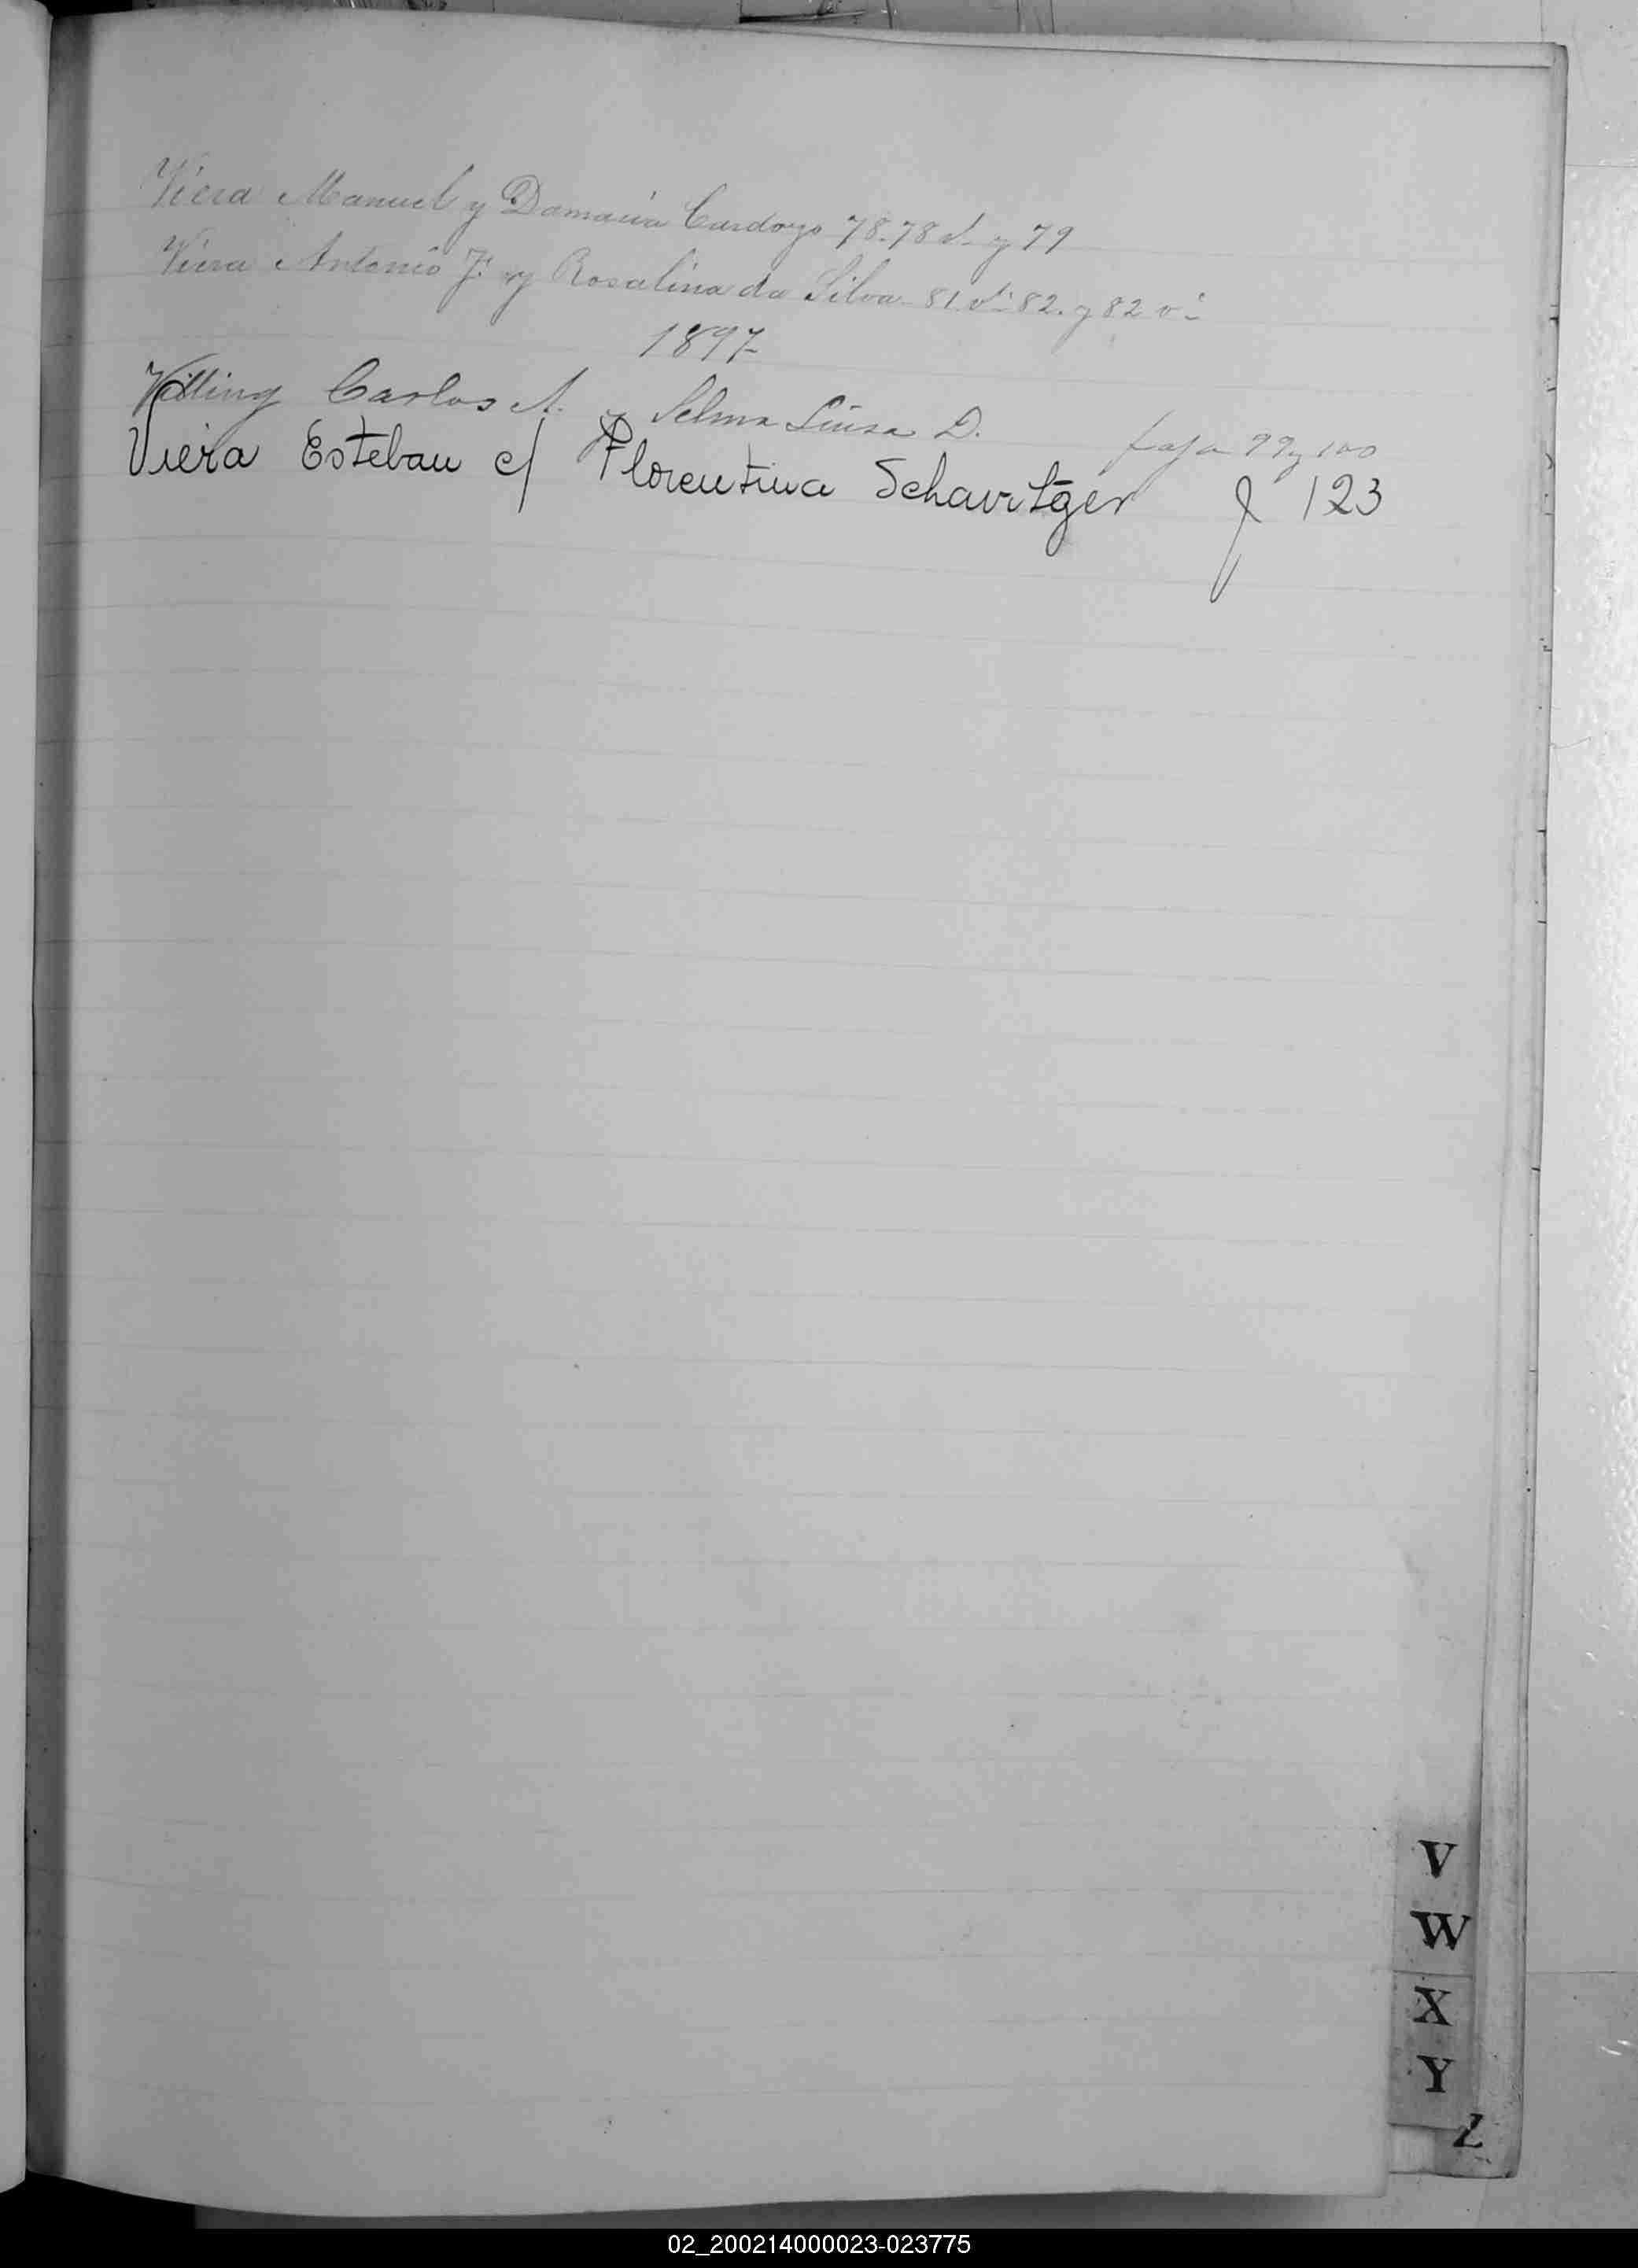 Viera Manuel y Damacia Cardozo 78. 78 v. y 79
Viera Antonio F. y Rosalina da Silva 81 vº 82. y 82 vº
1897
Villing Carlos A. y Selma Luisa D. foja 99 y 100
Viera Esteban c/ Florentina Schavitzer f 123
V
W
X
Y
Z
02_200214000023-023775